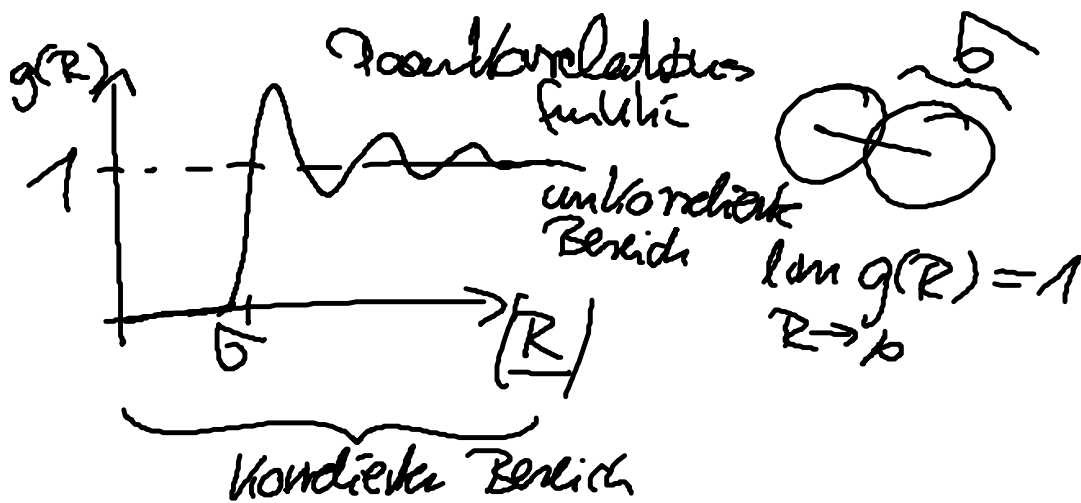 g(R)
Paarkorrelations
funktio
σ
1
unkorrelierte
Bereich
lim g(R) = 1
R → ∞
σ
|R|
korrelierter Bereich